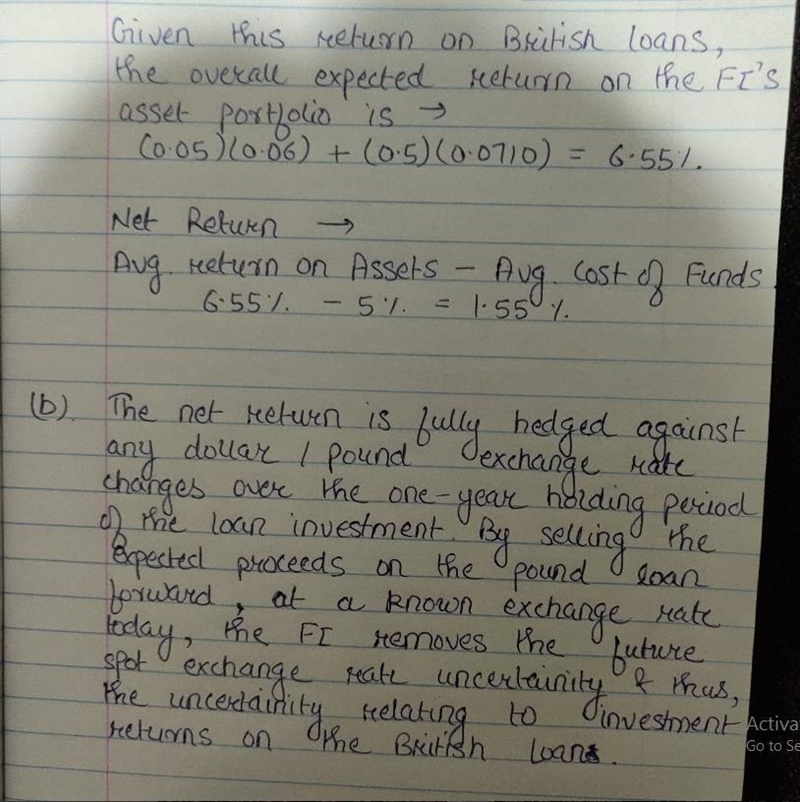 Given this return on British loans,
the overall expected return on the FI's
asset portfolio is →
(0.05)(0.06) + (0.5)(0.0710) = 6.55%.
Net Return →
Avg. return on Assets - Avg. Cost of Funds.
6.55%. - 5%. = 1.55%.
(b). The net return is fully hedged against
any dollar / pound exchange rate
changes over the one-year holding period
of the loan investment. By selling the
expected proceeds on the pound loan
forward, at a known exchange rate
today, the FI removes the future
spot exchange rate uncertainity & thus,
the uncertainity relating to investment
returns on the British loans.
Activa
Go to Se